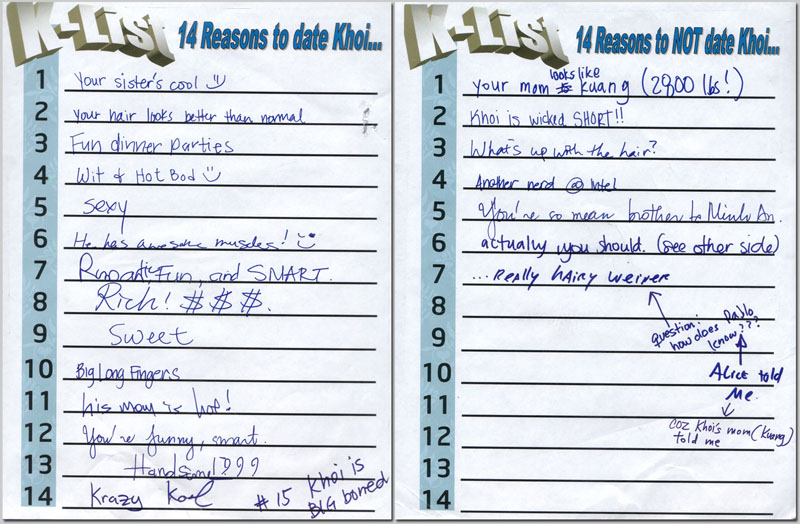 K-List 14 Reasons to date Khoi...
1 Your sister's cool
2 Your hair looks better than normal
3 Fun dinner parties
4 Wit & Hot Bod
5 sexy
6 He has awesome muscles!
7 Romantic, Fun, and SMART.
8 Rich! $$$.
9 Sweet
10 Big Long Fingers
11 his mom is hot!
12 You're funny, smart.
13 Handsome!
14 Krazy
#15 Khoi is
BIG boned
K-List 14 Reasons to NOT date Khoi...
looks like
1 your mom kuang (2800 lbs!)
2 Khoi is wicked SHORT!!
3 What's up with the hair?
4 Another nerd @ Intel
5 You're so mean brother to Minh An.
6 actually you should. (see other side)
7 ...Really hairy weiner
8
question:
how does Pablo
know???
9
10 Alice told
11 Me.
coz Khoi's mom (Kuang)
12 told me
13
14